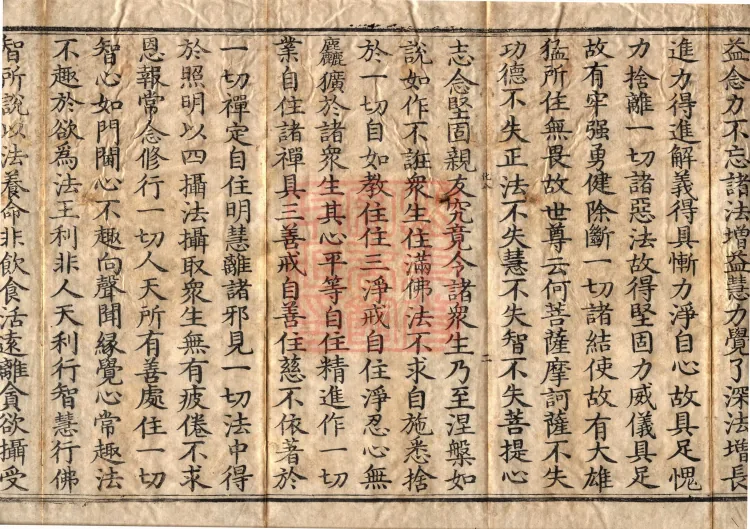 益念力不忘諸法增益慧力覺了深法增長
進力得進解義得具慚力淨自心故具足愧
力捨離一切諸惡法故得堅固力威儀具足
故有牢强勇健除斷一切諸結使故有大雄
猛所住無畏故世尊云何菩薩摩訶薩不失
功德不失正法不失慧不失智不失菩提心
志念堅固親友究竟令諸衆生乃至涅槃如
說如作不誑衆生住滿佛法不求自施悉捨
於一切自如教住住三淨戒自住淨忍心無
麤獷於諸衆生其心平等自住精進作一切
業自住諸禪具三善戒自善住慈不依著於
一切禪定自住明慧離諸邪見一切法中得
於照明以四攝法攝取衆生無有疲倦不求
恩報常念修行一切人天所有善處住一切
智心如門閫心不趣向聲聞緣覺心常趣法
不趣於欲爲法王利非人天利行智慧行佛
智所說以法養命非飲食活遠離貪欲攝受
二